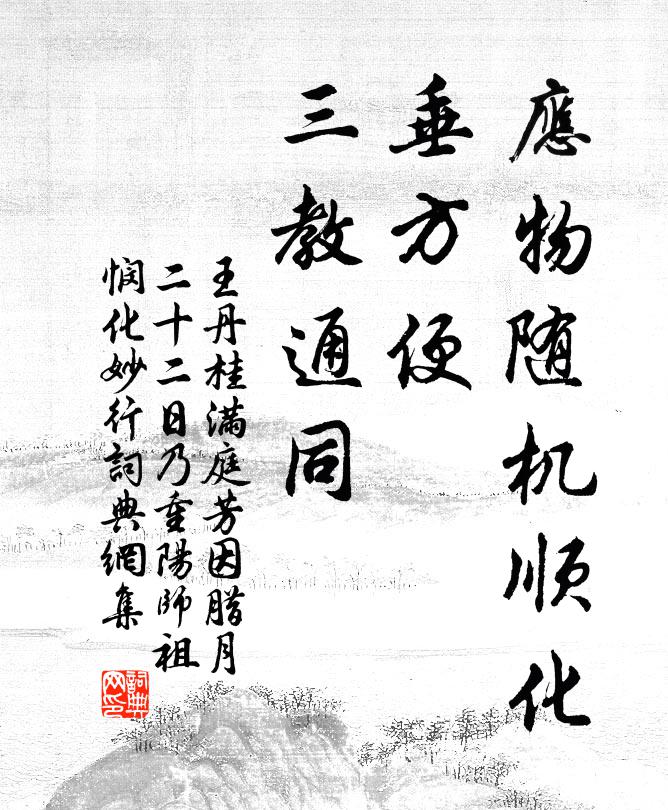 應物随机顺化
垂方便
三教通同
王丹桂满庭芳因腊月
二十二日乃重陽師祖
悯化妙行詞典網集
詞典
网印